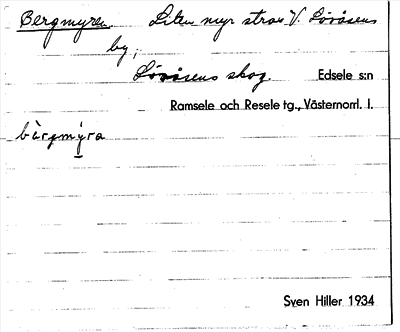 Bergmyren. Liten myr strax V. Lövåsens
by;
Lövåsens skog. Edsele s:n
Ramsele och Resele tg., Västernorrl. l.
bärgmýra
Sven Hiller 1934